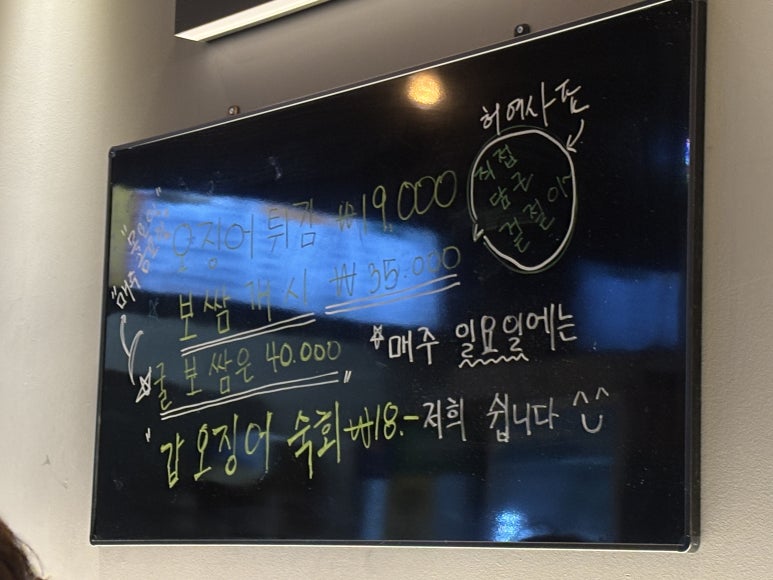 허여사표
직접
담근
겉절이
"매주
오징어 튀김 ₩19,000
보쌈 개시 ₩35.000
굴 보쌈은 40.000"
☆매주 일요일에는
저희 쉽니다 ^‿^
"갑오징어 숙회 ₩18.-